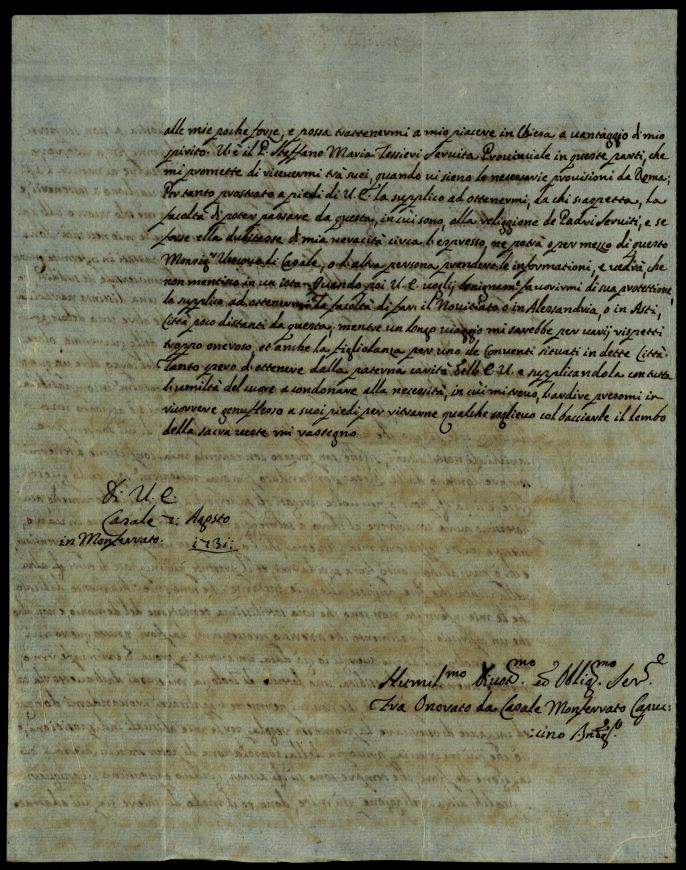 alle mie poche forze, e possa trattenermi a mio piacere in Chiesa a vantaggio di mio
spirito. V'è il P. Steffano Maria Tessieri Servita Provinciale in queste parti, che
mi promette di ricevermi trà suoi, quando vi sieno le necessarie provisioni da Roma;
Per tanto prostrato a piedi di V. E. la supplico ad ottenermi, da chi s'aspetta, la
facoltà di poter passare da questa, in cui sono, alla religgione de Padri Serviti, e se
forse ella dubitasse di mia veracità circa l'espresso, ne potrà o per mezzo di questo
Monsigr Vescovo di Casale, o d'altra persona prendere le informationi, e vedrà che
non mentisco in un iota. Quando poi V. E. vogli benignamte favorirmi di sua protettione
la supplico ad ottenermi la facoltà di far il Novitiato o in Alessandria, o in Asti,
Città poco distanti da questa, mentre un longo viaggio mi sarebbe per varij rispetti
troppo oneroso, et anche la figliolanza per uno de Conventi situati in dette Città.
Tanto spero d'ottenere dalla paterna carità dell' E. V. e supplicandola con tutta
l'umiltà del cuore a condonare alla necessità, in cui mi trovo, l'ardire presomi in
ricorrere genuflesso a suoi piedi per ritrarne qualche soglievo col bacciarle il lembo
della sacra veste mi rassegno
Di V. E.
Casale Agosto
in Monferrato: 1731:
Humil.mo ed Obblig.mo Ser.e
Fra Onorato da Casale Monferrato Capuc:
:cino